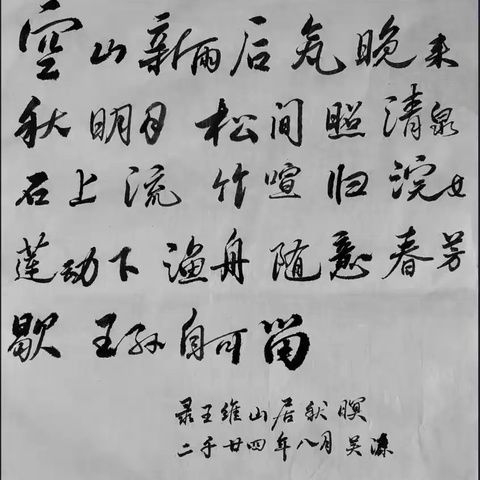 空山新雨后气晚来
秋明月松间照清泉
石上流竹喧归浣女
莲动下渔舟随意春芳
歇王孙自可留
录王维山居秋暝
二千廿四年八月吴